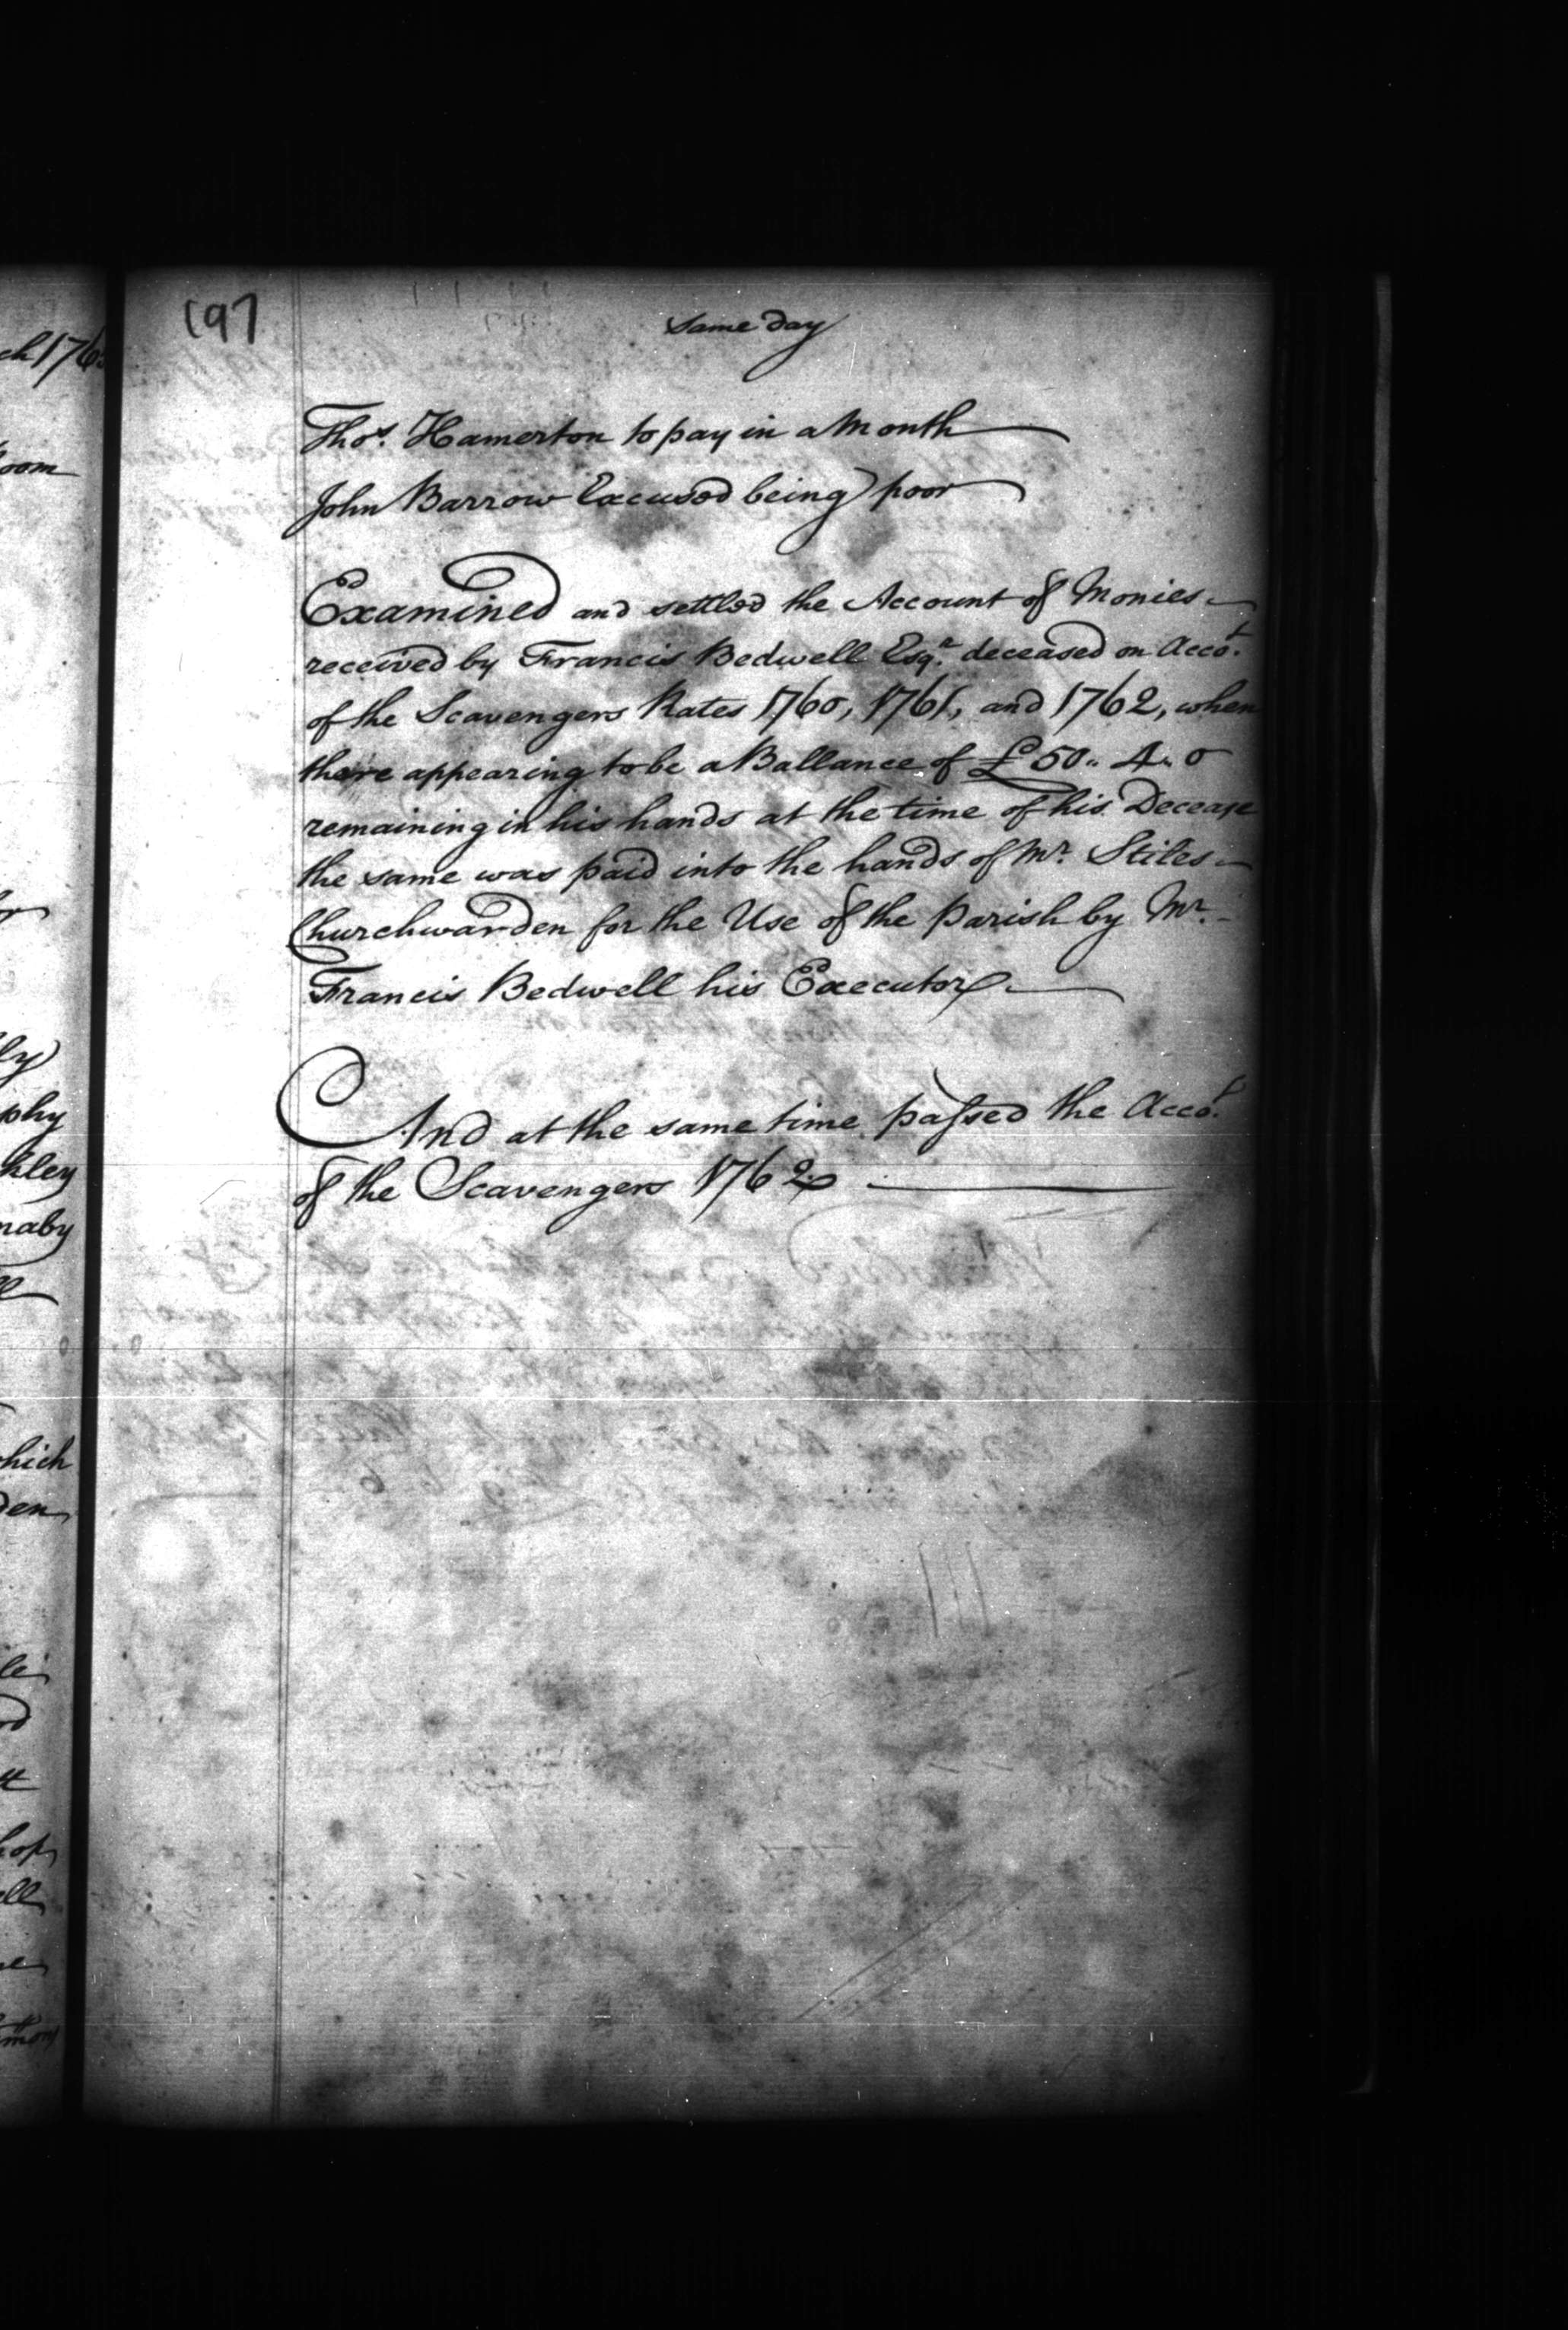 197
same day
Thos. Hamerton to pay in a Month
John Barrow Excused being poor
Examined and settled the Account of Monies
received by Francis Bedwell Esqr. deceased on Accot.
of the Scavengers Rates 1760, 1761, and 1762, when
there appearing to be a Ballance of £50.. 4.. 0
remaining in his hands at the time of his Decease
the same was paid into the hands of Mr. Stiles
Churchwarden for the Use of the Parish by Mr.
Francis Bedwell his Executor
And at the same time passed the Accot.
of the Scavengers 1762